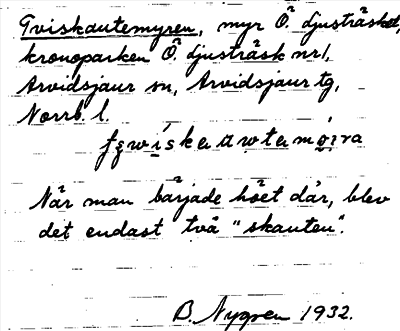 Tviskautemyren, myr Ö. djusträsket,
kronoparken Ö. djusträsk nr 1,
Arvidsjaur sn, Arvidsjaur tg,
Norrb. l.
När man bärjade höet där, blev
det endast två "skauten".
B. Nygren 1932.